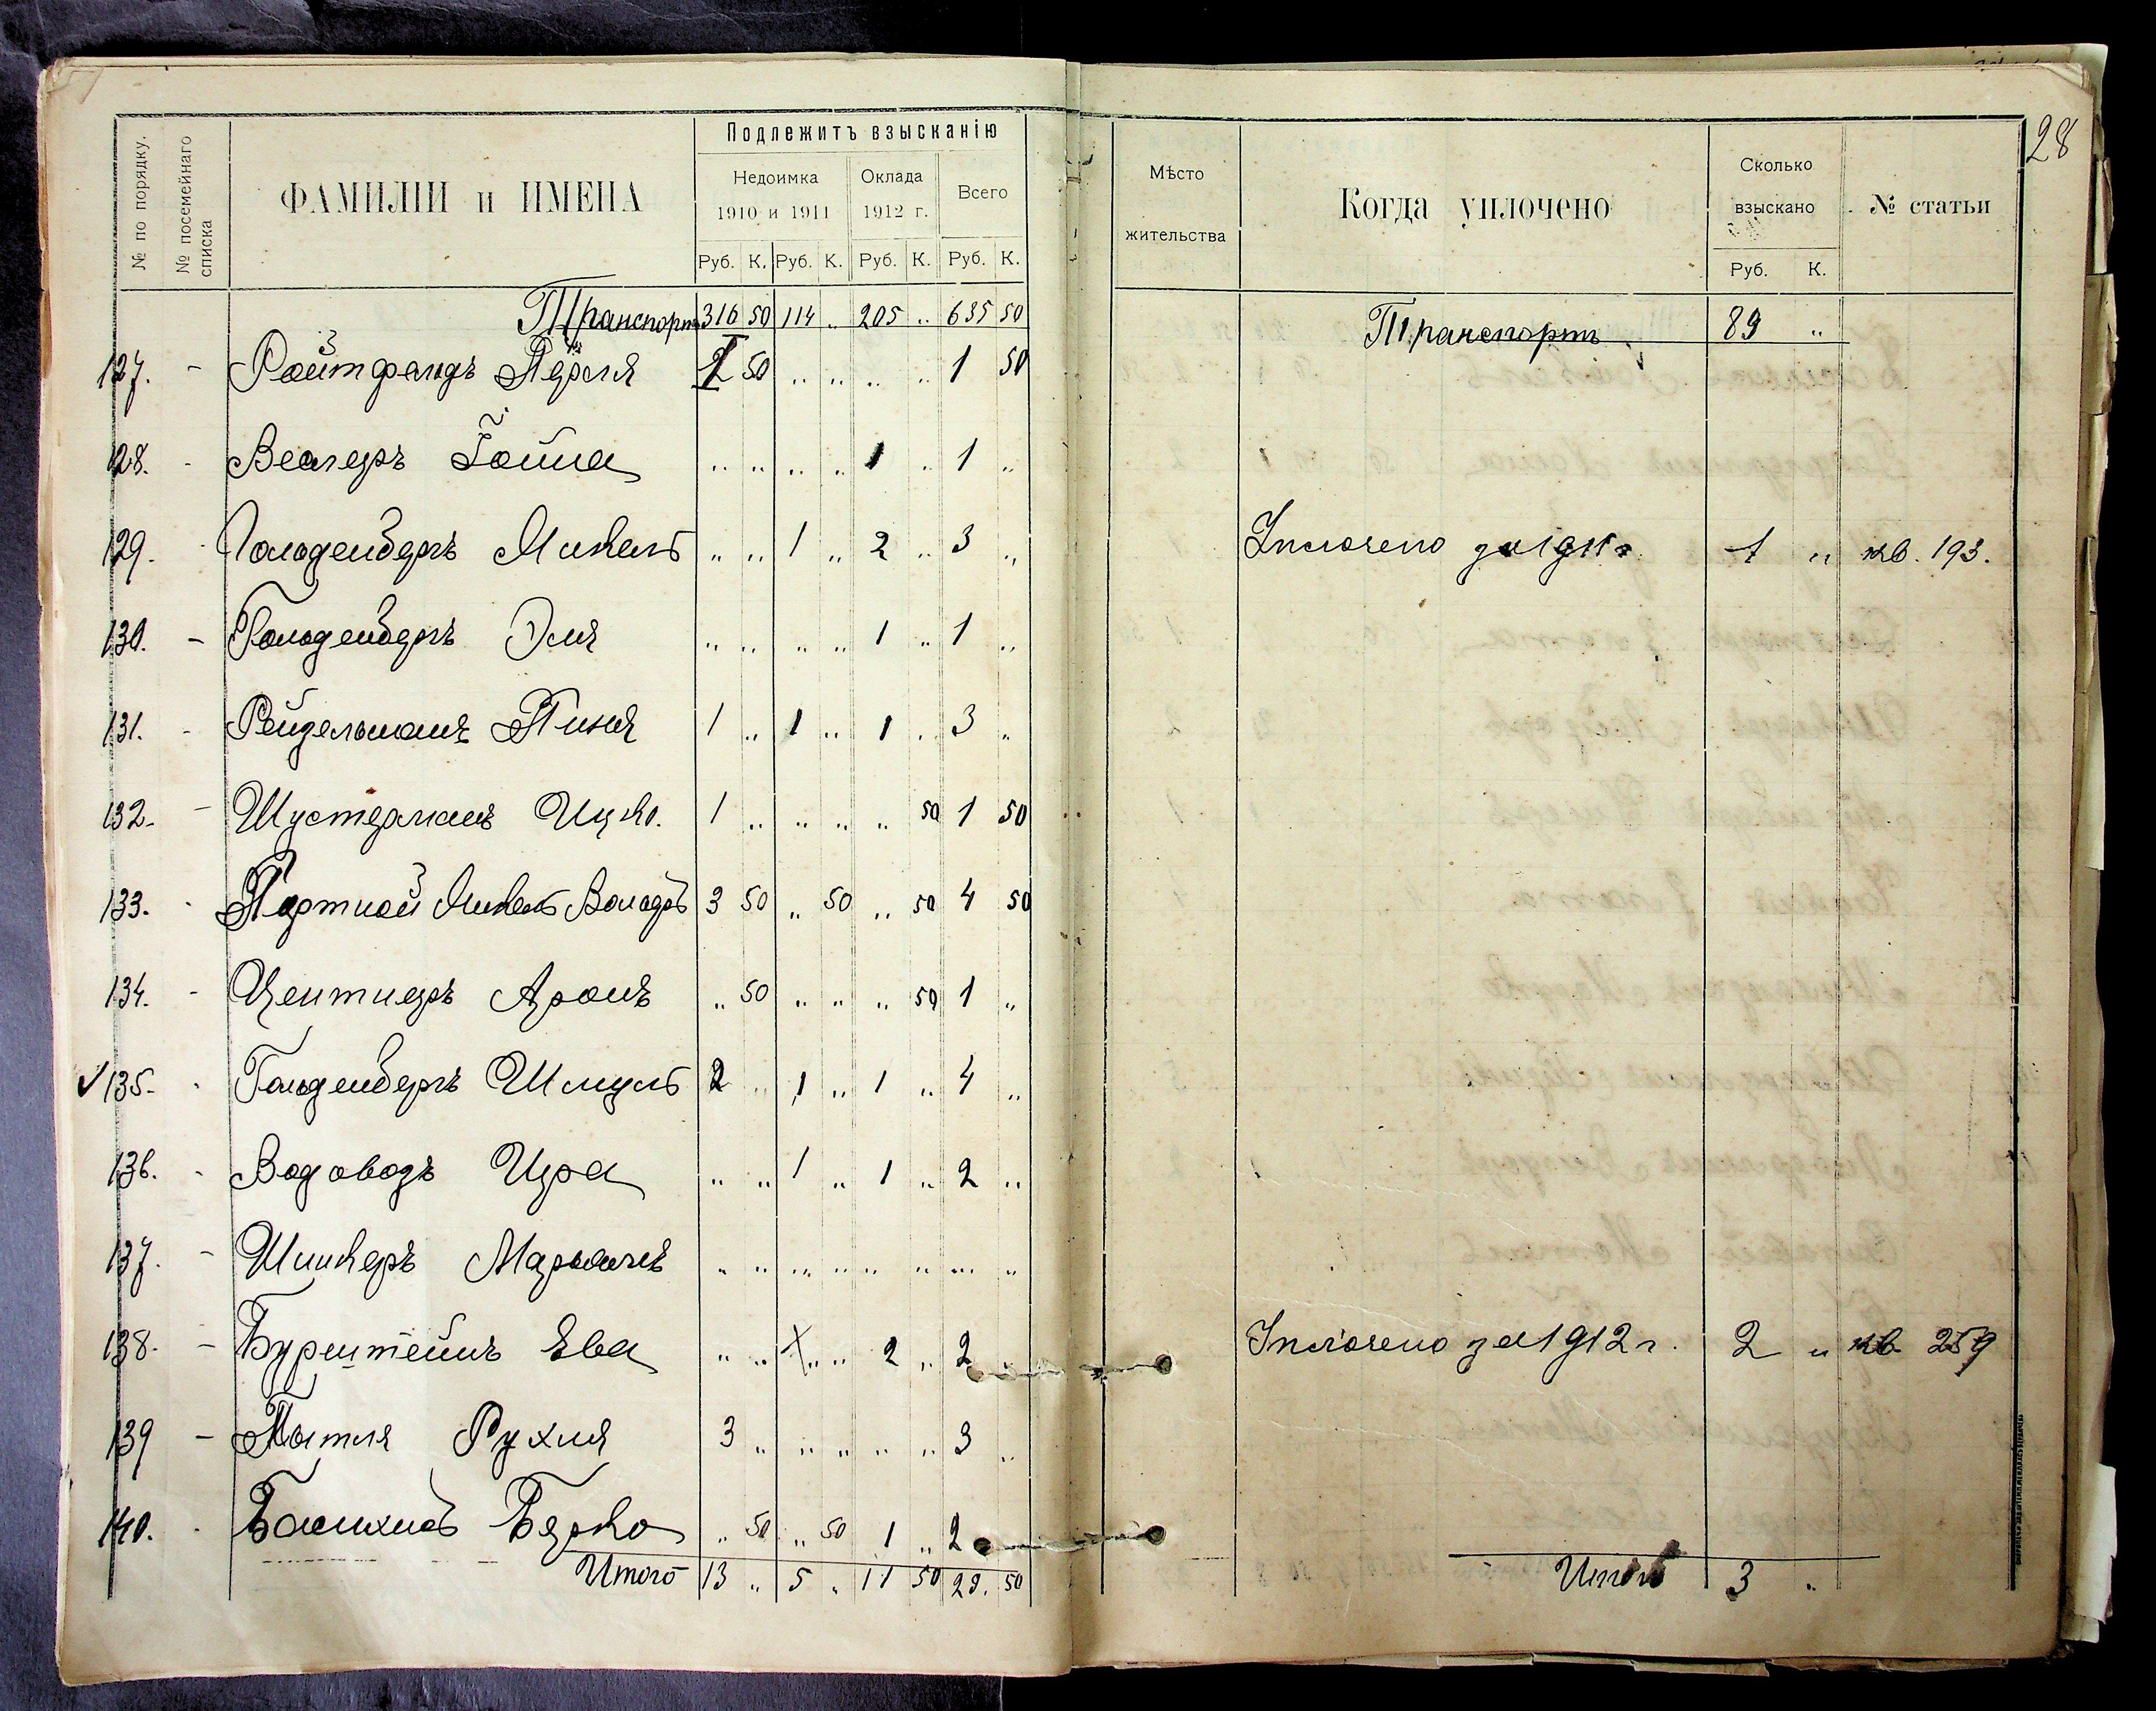 28
№ по порядку.
№ посемейнаго списка
ФАМИЛІИ и ИМЕНА
Подлежитъ взысканію
Недоимка 1910 и 1911
Оклада 1912 г.
Всего
Руб. К. Руб. К. Руб. К. Руб. К.
Мѣсто жительства
Когда уплочено
Сколько взыскано
Руб. К.
№ статьи
Транспортъ 316 50 114 „ 205 „ 635 50 Транспортъ 89 „
127. - Ройтфарбъ Перля 50 „ „ „ „ 1 50
128. - Веллеръ Гойна „ „ „ „ 1 „ 1 „
129. - Гольденбергъ Михель „ „ 1 „ 2 „ 3 „ Уплочено за 1911 г. 1 „ кв. 193.
130. - Гольденбергъ Эля „ „ „ „ 1 „ 1 „
131. - Рейдельманъ Пиня 1 „ 1 „ 1 „ 3 „
132. - Шустерманъ Ицко. 1 „ „ „ „ 50 1 50
133. - Портной Михель Володь 3 50 „ 50 „ 50 4 50
134. - Центнеръ Аронъ „ 50 „ „ „ 50 1 „
✓ 135. - Гольденбергъ Шмуль 2 „ 1 „ 1 „ 4 „
136. - Водовозъ Ицра „ „ 1 „ 1 „ 2 „
137. - Шинкеръ „ „ „ „ „ „ „ „
138. - Бурштейнъ Ева „ „ „ „ 2 „ 2 „ Уплочено за 1912 г. 2 „ кв. 259
139 - Рухля 3 „ „ „ „ „ 3 „
140. - Берко „ 50 „ 50 1 „ 2
Итого 13 „ 5 „ 11 50 29. 50 Итого 3 „